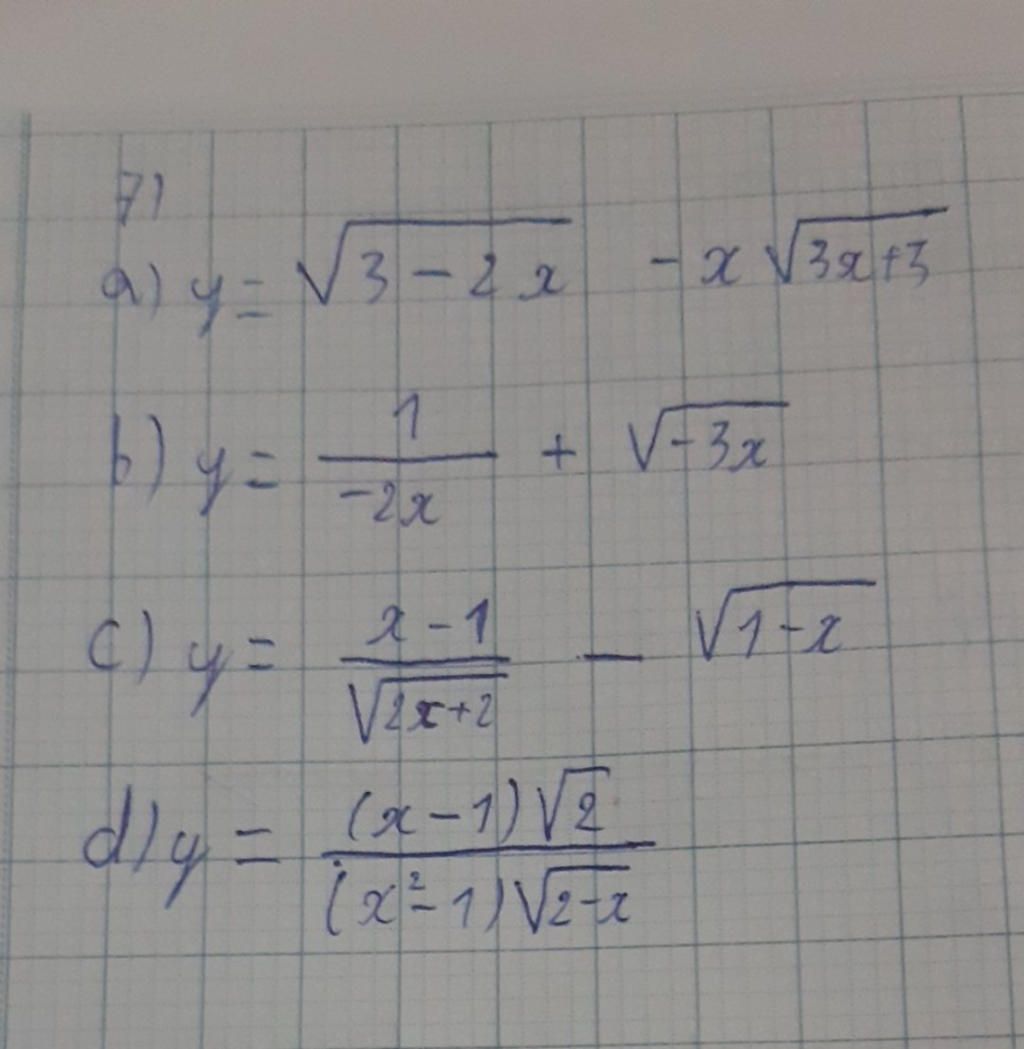 71
a) y = √(3 - 2x) - x√(3x+3)
b) y = 1/(-2x) + √(-3x)
c) y = (x-1)/√(2x+2) - √(1-x)
d) y = ((x-1)√2)/((x²-1)√(2-x))